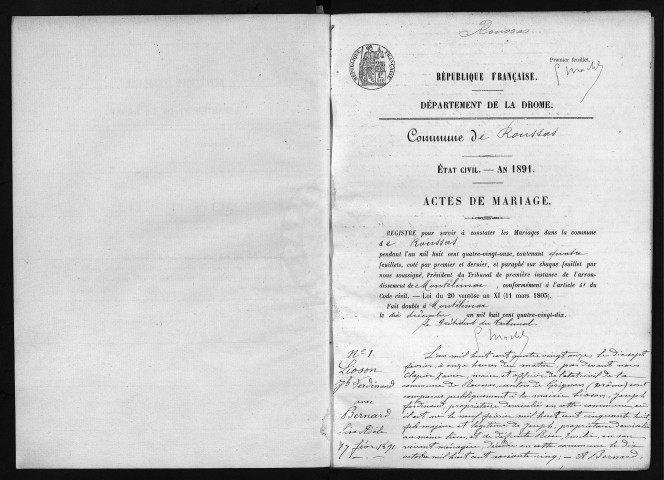 Roussas
Premier feuillet.
RÉPUBLIQUE FRANÇAISE.
DÉPARTEMENT DE LA DROME.
Commune de Roussas
ÉTAT CIVIL. — AN 1891.
ACTES DE MARIAGE.
REGISTRE pour servir à constater les Mariages dans la commune
de Roussas
pendant l'an mil huit cent quatre-vingt-onze, contenant quatre
feuillets, coté par premier et dernier, et paraphé sur chaque feuillet par
nous soussigné, Président du Tribunal de première instance de l'arron-
dissement de Montélimar, conformément à l'article 41 du
Code civil. — Loi du 20 ventôse an XI (11 mars 1803).
Fait double à Montélimar
le dix décembre an mil huit cent quatre-vingt-dix.
Le Président du tribunal.
N° 1.
Lioson
Jh Ferdinand
avec
Bernard
Adèle
17 févr 1891
L'an mil huit cent quatre vingt onze, le dix sept
février à onze heures du matin, par devant nous
Clapier Xavier, maire et officier de l'état civil de la
commune de Roussas, canton de Grignan, (Drôme) sont
comparus publiquement à la mairie Lioson, Joseph
Ferdinand, propriétaire domicilié en cette commune, où
il est né le neuf février mil huit cent cinquante huit
fils majeur et légitime de Joseph, propriétaire domicilié
au même lieu et de défunte Emilie, en son
vivant ménagère, décédée en cette commune le dix
octobre mil huit cent soixante cinq; — et Bernard